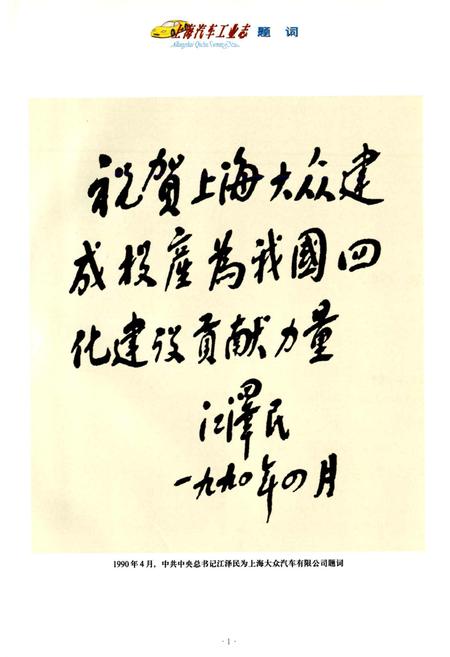 上海汽车工业志 题 词
祝賀上海大众建
成投産為我國四
化建设貢献力量
江澤民
一九九〇年四月
1990 年 4 月，中共中央总书记江泽民为上海大众汽车有限公司题词
· 1 ·